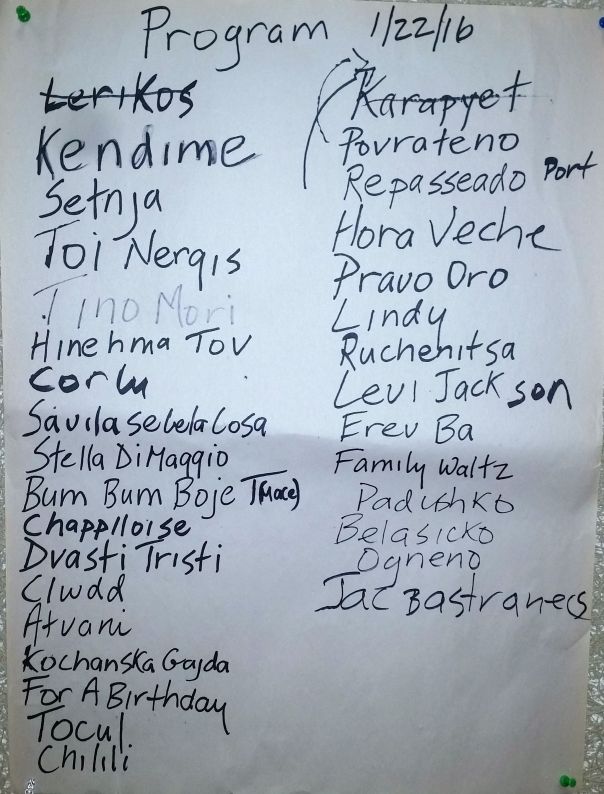 Program 1/22/16
Lerikos
Kendime
Setnja
Toi Nergis
Tino Mori
Hinehma Tov
Corlu
Savila se bela Losa
Stella DiMaggio
Bum Bum Boje T(Mace)
Chappelloise
Dvasti Tristi
Clwdd
Atvani
Kochanska Gajda
For A Birthday
Tocul
Chilili
Karapyet
Povrateno
Repasseado Port
Hora Veche
Pravo Oro
Lindy
Ruchenitsa
Levi Jackson
Erev Ba
Family Waltz
Padushko
Belasicko
Ogneno
Jac Bastranecs